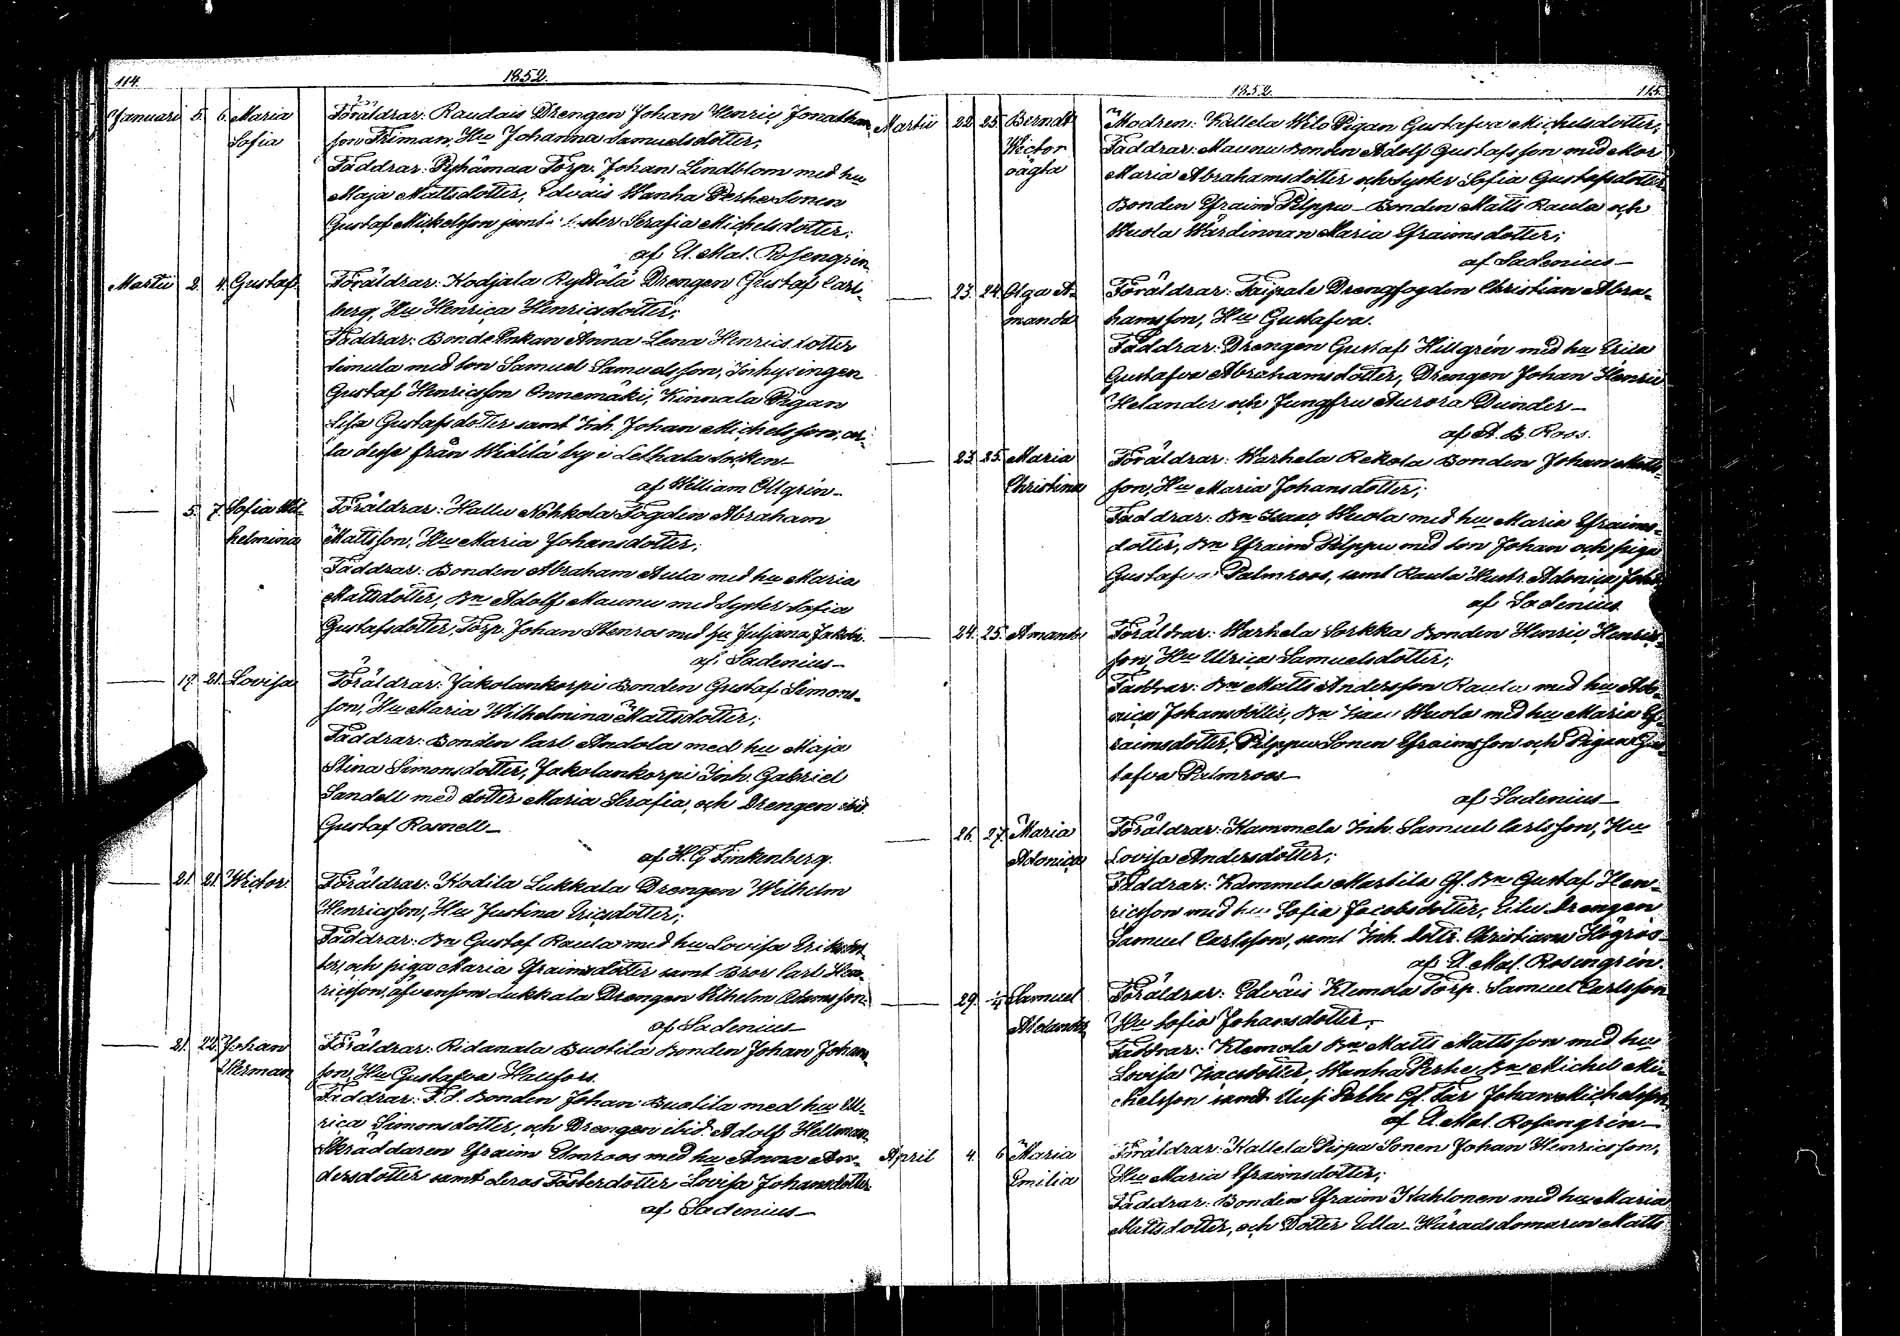 114. 1852.
Januari 5. 6. Maria Föräldrar: Raudais Drengen Johan Henric Jonathan
Sofia son Friman, Hu Johanna Samuelsdotter;
Faddrar: Pyhämaa Torp. Johan Lindblom med hu
Maja Mattsdotter, Edväis Wanha Perhe Sonen
Gustaf Mickelsson jemte Syster Serafia Michelsdotter;
af A. Mal. Rosengrén
Martii 2. 4. Gustaf Föräldrar: Kodjala Ryttölä Drengen Gustaf Carl-
berg, Hu Henrica Henricsdotter;
Faddrar: Bonde Enkan Anna Lena Henricsdotter
Simula med son Samuel Samuelsson, Inhysingen
Gustaf Henricsson Onnemäki, Kinnala Pigan
Lisa Gustafsdotter samt Inh. Johan Michelsson, al-
la desse från Widilä by i Lethala Socken
af William Ollgrén
— 5. 7. Sofia Wil- Föräldrar: Hallu Nohkola Fogden Abraham
helmina Mattsson, Hu Maria Johansdotter;
Faddrar: Bonden Abraham Aula med hu Maria
Mattsdotter, Bn Adolf Maunu med Syster Sofia
Gustafsdotter, Torp. Johan Stenros med hu Juljana Jakobs.
af Sadenius
— 19. 21. Lovisa Föräldrar: Jakolankorpi Bonden Gustaf Simons-
son, Hu Maria Wilhelmina Mattsdotter;
Faddrar: Bonden Carl Andola med hu Maja
Stina Simonsdotter, Jakolankorpi Inh. Gabriel
Sandell med dotter Maria Serafia, och Drengen ibid
Gustaf Rosnell
af H. G Finkenberg.
— 21. 21. Wictor Föräldrar: Kodila Lukkala Drengen Wilhelm
Henricsson, Hu Justina Ericsdotter;
Faddrar: Bn Gustaf Raula med hu Lovisa Eriksdot-
ter, och piga Maria Efraimsdotter samt Bror Carl Hen-
ricsson, äfvensom Lukkala Drengen Vilhelm Adamsson
af Sadenius
— 21. 22. Johan Föräldrar: Ridanala Buotila Bonden Johan Johan
Herman son, Hu Gustafva Hallfors.
Faddrar: F. d. Bonden Johan Buotila med hu Ul-
rica Simonsdotter, och Drengen ibid. Adolf Hellman
Skräddaren Efraim Lönroos med hu Anna An-
dersdotter samt deras Fosterdotter Lovisa Johansdotter
af Sadenius
1852. 115.
Martii 22 25. Berndt Modren: Kallela Wilo Pigan Gustafva Michelsdotter;
Wictor Faddrar: Maunu Bonden Adolf Gustafsson med Mor
oägta Maria Abrahamsdotter och Syster Sofia Gustafsdotter
Bonden Efraim Pilppu Bonden Matts Raula och
Wuola Wärdinnan Maria Efraimsdotter;
af Sadenius
— 23. 24. Olga A- Föräldrar: Taipale Drengfogden Christian Abra-
manda hamsson, Hu Gustafva.
Faddrar: Drengen Gustaf Hillgrén med hu Erica
Gustafva Abrahamsdotter, Drengen Johan Henric
Helander och Jungfru Aurora Dunder
af A. B. Roos.
— 23. 25. Maria Föräldrar: Warhela Rekola Bonden Johan Matts-
Christina son, Hu Maria Johansdotter;
Faddrar: Bn Isaac Wuola med hu Maria Efraims-
dotter, Bn Efraim Pilppu med son Johan och piga
Gustafva Palmroos, samt Raula Hustr. Adonica Joh
af Sadenius
— 24. 25. Amanda Föräldrar: Warhela Sorkka Bonden Henric Henrics-
son, Hu Ulrica Samuelsdotter;
Faddrar: Bn Matts Andersson Raula med hu Ado-
nica Johansdotter, Bn Isac Wuola med hu Maria Ef-
raimsdotter, Pilppu Sonen Efraimsson och Pigan Gus-
tafva Palmroos
af Sadenius
— 26. 27. Maria Föräldrar: Kammela Inh. Samuel Carlsson, Hu
Adonica Lovisa Andersdotter;
Faddrar: Kammela Martila Gl. Bn Gustaf Hen-
ricsson med hu Sofia Jacobsdotter, Lilu Drengen
Samuel Carlsson, samt Inh. dottr. Christiana Högros
af A. Mal. Rosengrén.
— 29. 1/4 Samuel Föräldrar: Edväis Klemola Torp. Samuel Carlsson
Hu Sofia Johansdotter;
Faddrar: Klemola Bn Matts Mattsson med hu
Lovisa Isacsdotter, Wanha Perhe Bn Michel Mi-
chelsson samt Uusi Perhe Gl. Far Johan Michelsson
af A. Mal. Rosengrén
April 4. 6 Maria Föräldrar: Kallela Pispa Sonen Johan Henricsson,
Emilia Hu Maria Efraimsdotter;
Faddrar: Bonden Efraim Kahlonen med hu Maria
Mattsdotter, och Dotter Ulla Häradsdomaren Matts